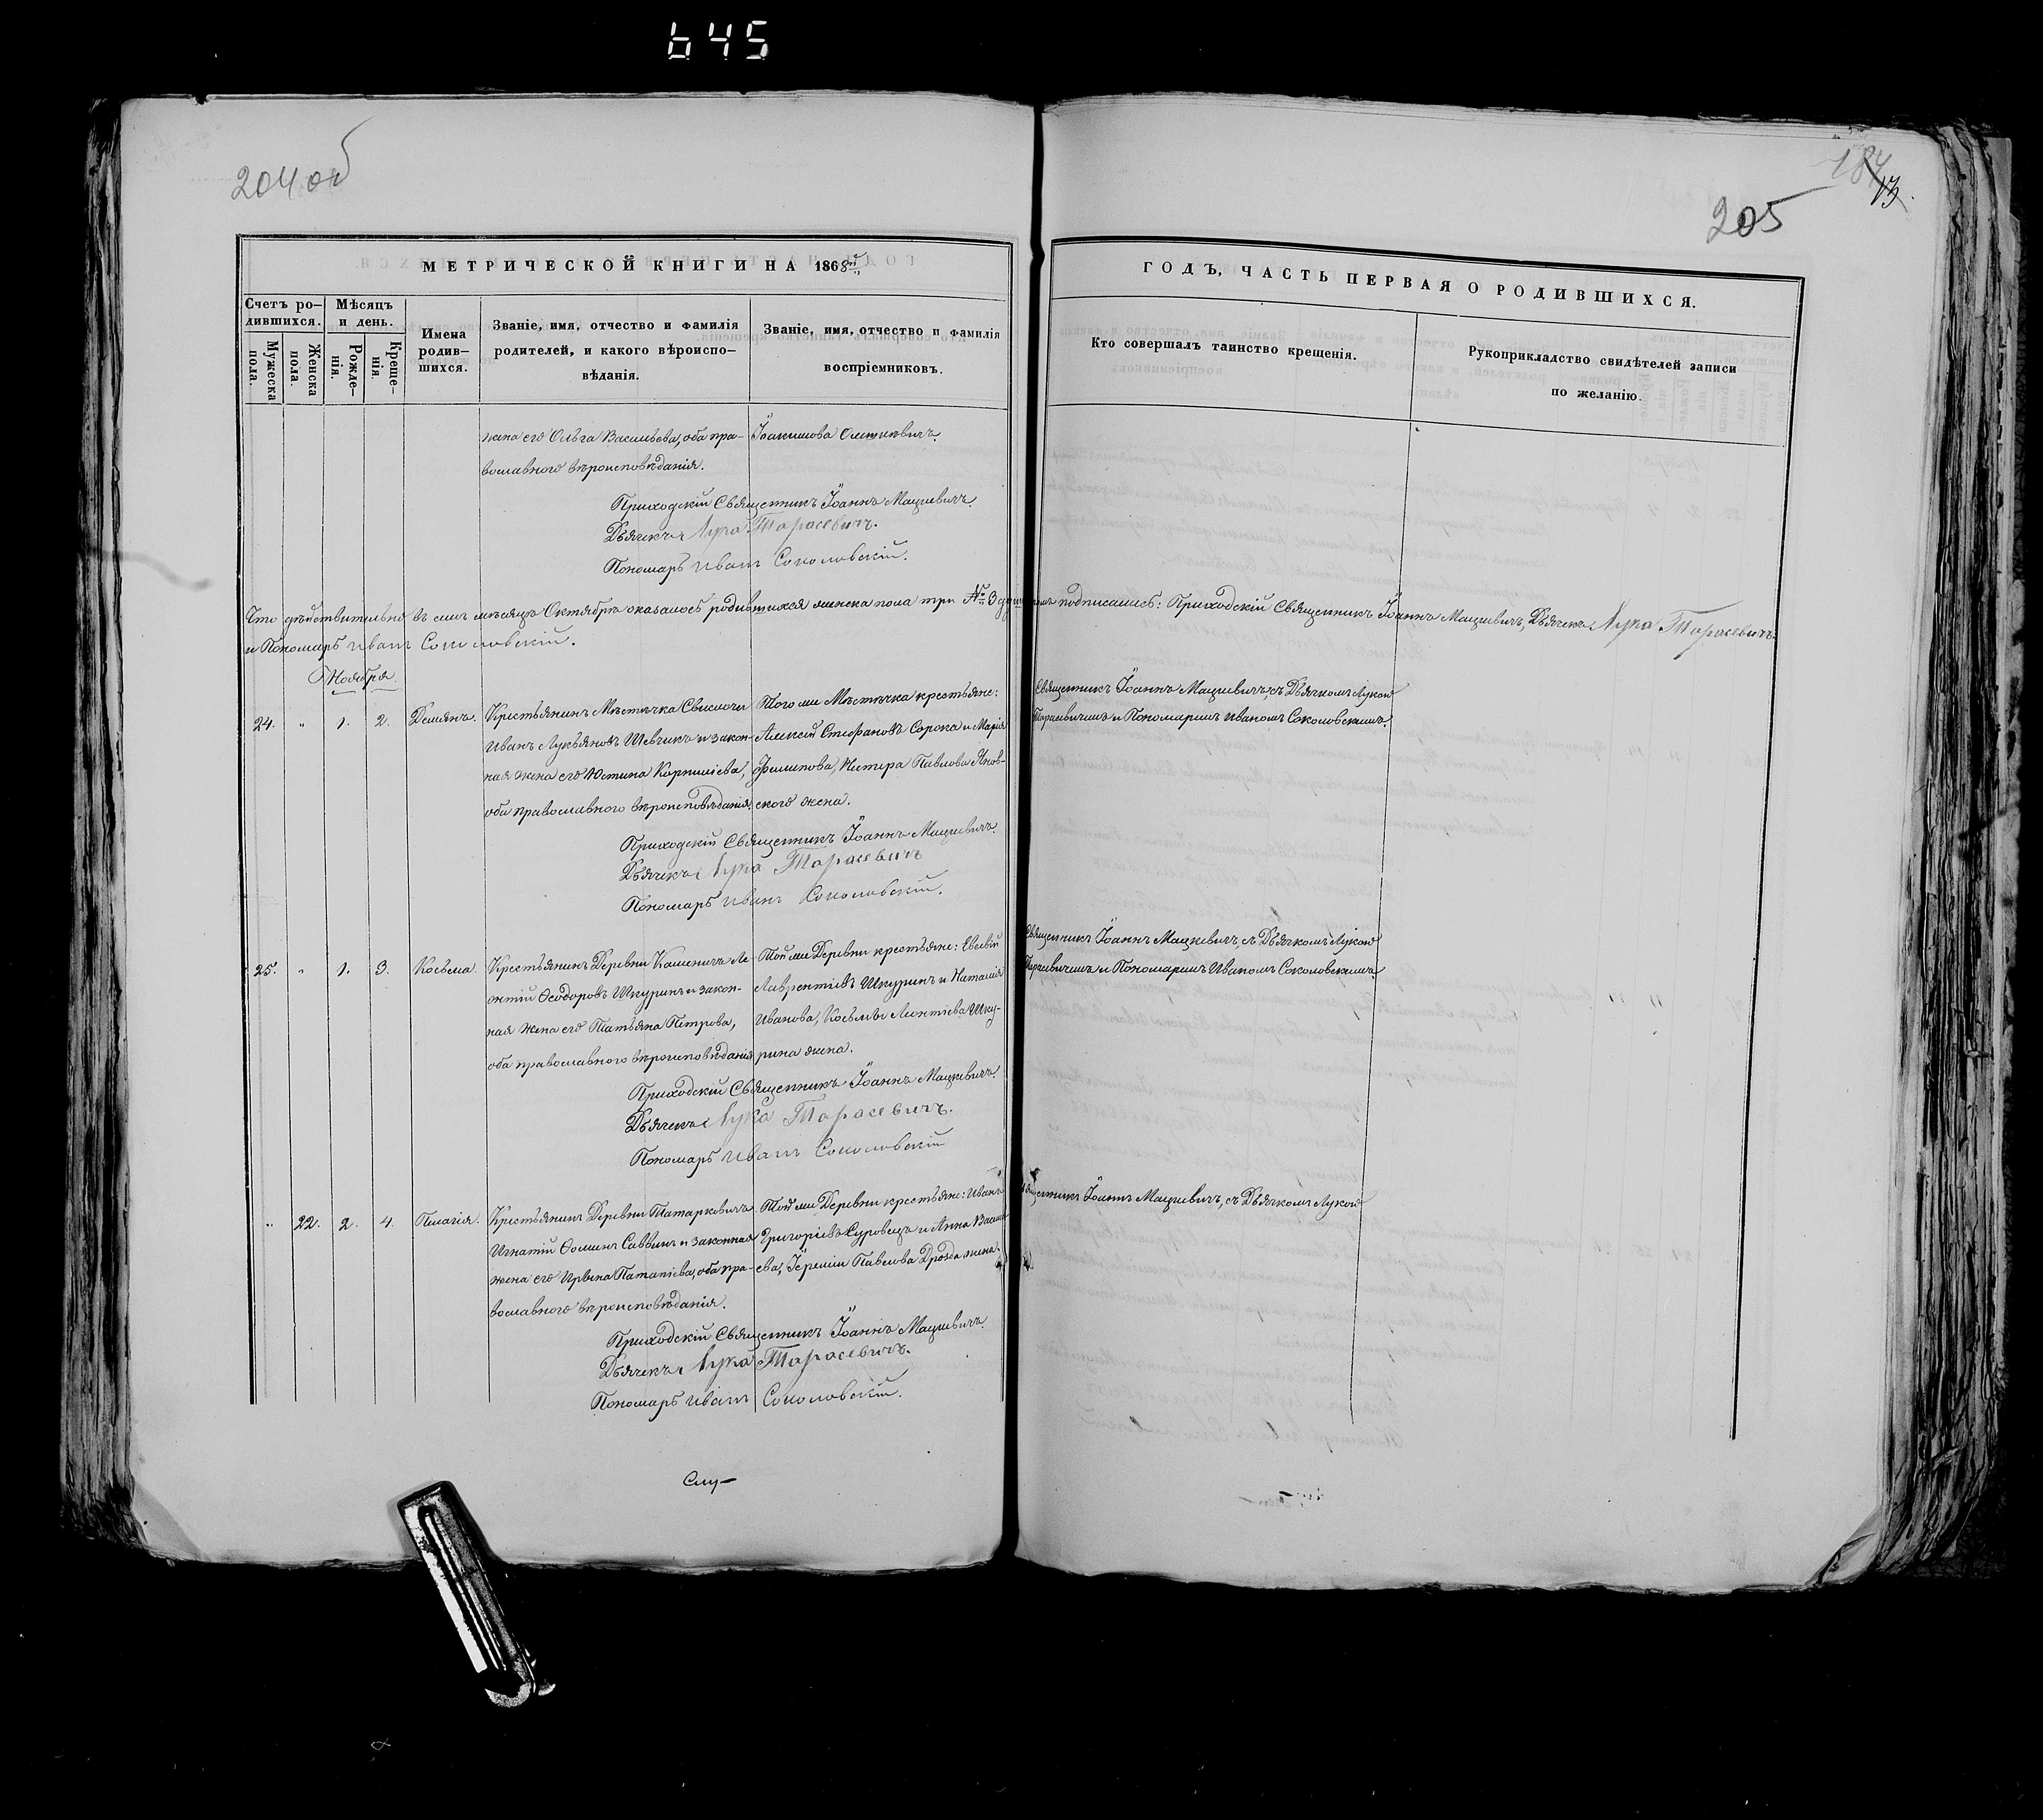 645
204 об
184
13.
205
МЕТРИЧЕСКОЙ КНИГИ НА 1868й
ГОДЪ, ЧАСТЬ ПЕРВАЯ О РОДИВШИХСЯ.
Счетъ ро-
дившихся.
Мѣсяцъ
и день.
Мужеска
пола.
Женска
пола.
Рожде-
нія.
Креще-
нія.
Имена
родив-
шихся.
Званіе, имя, отчество и фамилія
родителей, и какого вѣроиспо-
вѣданія.
Званіе, имя, отчество и фамилія
воспріемниковъ.
Кто совершалъ таинство крещенія.
Рукоприкладство свидѣтелей записи
по желанію.
жена его Ольга Васильева, оба пра-
вославного вѣроисповѣданія.
Іоакимова
Приходскій Священникъ Іоаннъ Мацкевичъ.
Дьячекъ Лука Тарасевичъ.
Пономарь Иванъ Соколовскій.
Что дѣйствительно въ семъ мѣсяцѣ Октябрѣ оказалось родившихся женска пола три № 3 подписались: Приходскій Священникъ Іоаннъ Мацкевичъ, Дьячекъ Лука Тарасевичъ
и Пономарь Иванъ Соколовскій.
Ноября.
24. " 1. 2. Демянъ.
Крестьянинъ Мѣстечка Свислочи
Иванъ Лукьяновъ Шевчикъ и закон-
ная жена его Юстина Корнилієва,
оба православного вѣроисповѣданія.
Того же Мѣстечка крестьяне:
Алексѣй Стефановъ Сорока и Марія
Филипова, Нестера Павлова Янов-
ского жена.
Священникъ Іоаннъ Мацкевичъ, съ Дьячкомъ Лукою
Тарасевичемъ и Пономаремъ Иваномъ Соколовскимъ.
Приходскій Священникъ Іоаннъ Мацкевичъ.
Дьячекъ Лука Тарасевичъ
Пономарь Иванъ Соколовскій.
25. " 1. 3. Косьма.
Крестьянинъ Деревни Каменичъ Ле-
онтій Ѳеодоровъ Шкуринъ и закон-
ная жена его Татьяна Петрова,
оба православного вѣроисповѣданія
Той же Деревни крестьяне: Евсевій
Лаврентіевъ Шкуринъ и Наталія
Иванова, Косьмы Леонтіева Шку-
рина жена.
Священникъ Іоаннъ Мацкевичъ, съ Дьячкомъ Лукою
Тарасевичемъ и Пономаремъ Иваномъ Соколовскимъ.
Приходскій Священникъ Іоаннъ Мацкевичъ.
Дьячекъ Лука Тарасевичъ.
Пономарь Иванъ Соколовскій
" 22. 2. 4. Пелагія.
Крестьянинъ Деревни Татарковичъ
Игнатій Ѳоминъ Саввинъ и законная
жена его Ирина Патапіева, оба пра-
вославного вѣроисповѣданія.
Той же Деревни крестьяне: Иванъ
Григоріевъ Суровецъ и Анна Василі-
ева, Іереміи Павлова Дрозда жена.
Священникъ Іоаннъ Мацкевичъ, съ Дьячкомъ Лукою
Приходскій Священникъ Іоаннъ Мацкевичъ.
Дьячекъ Лука Тарасевичъ.
Пономарь Иванъ Соколовскій.